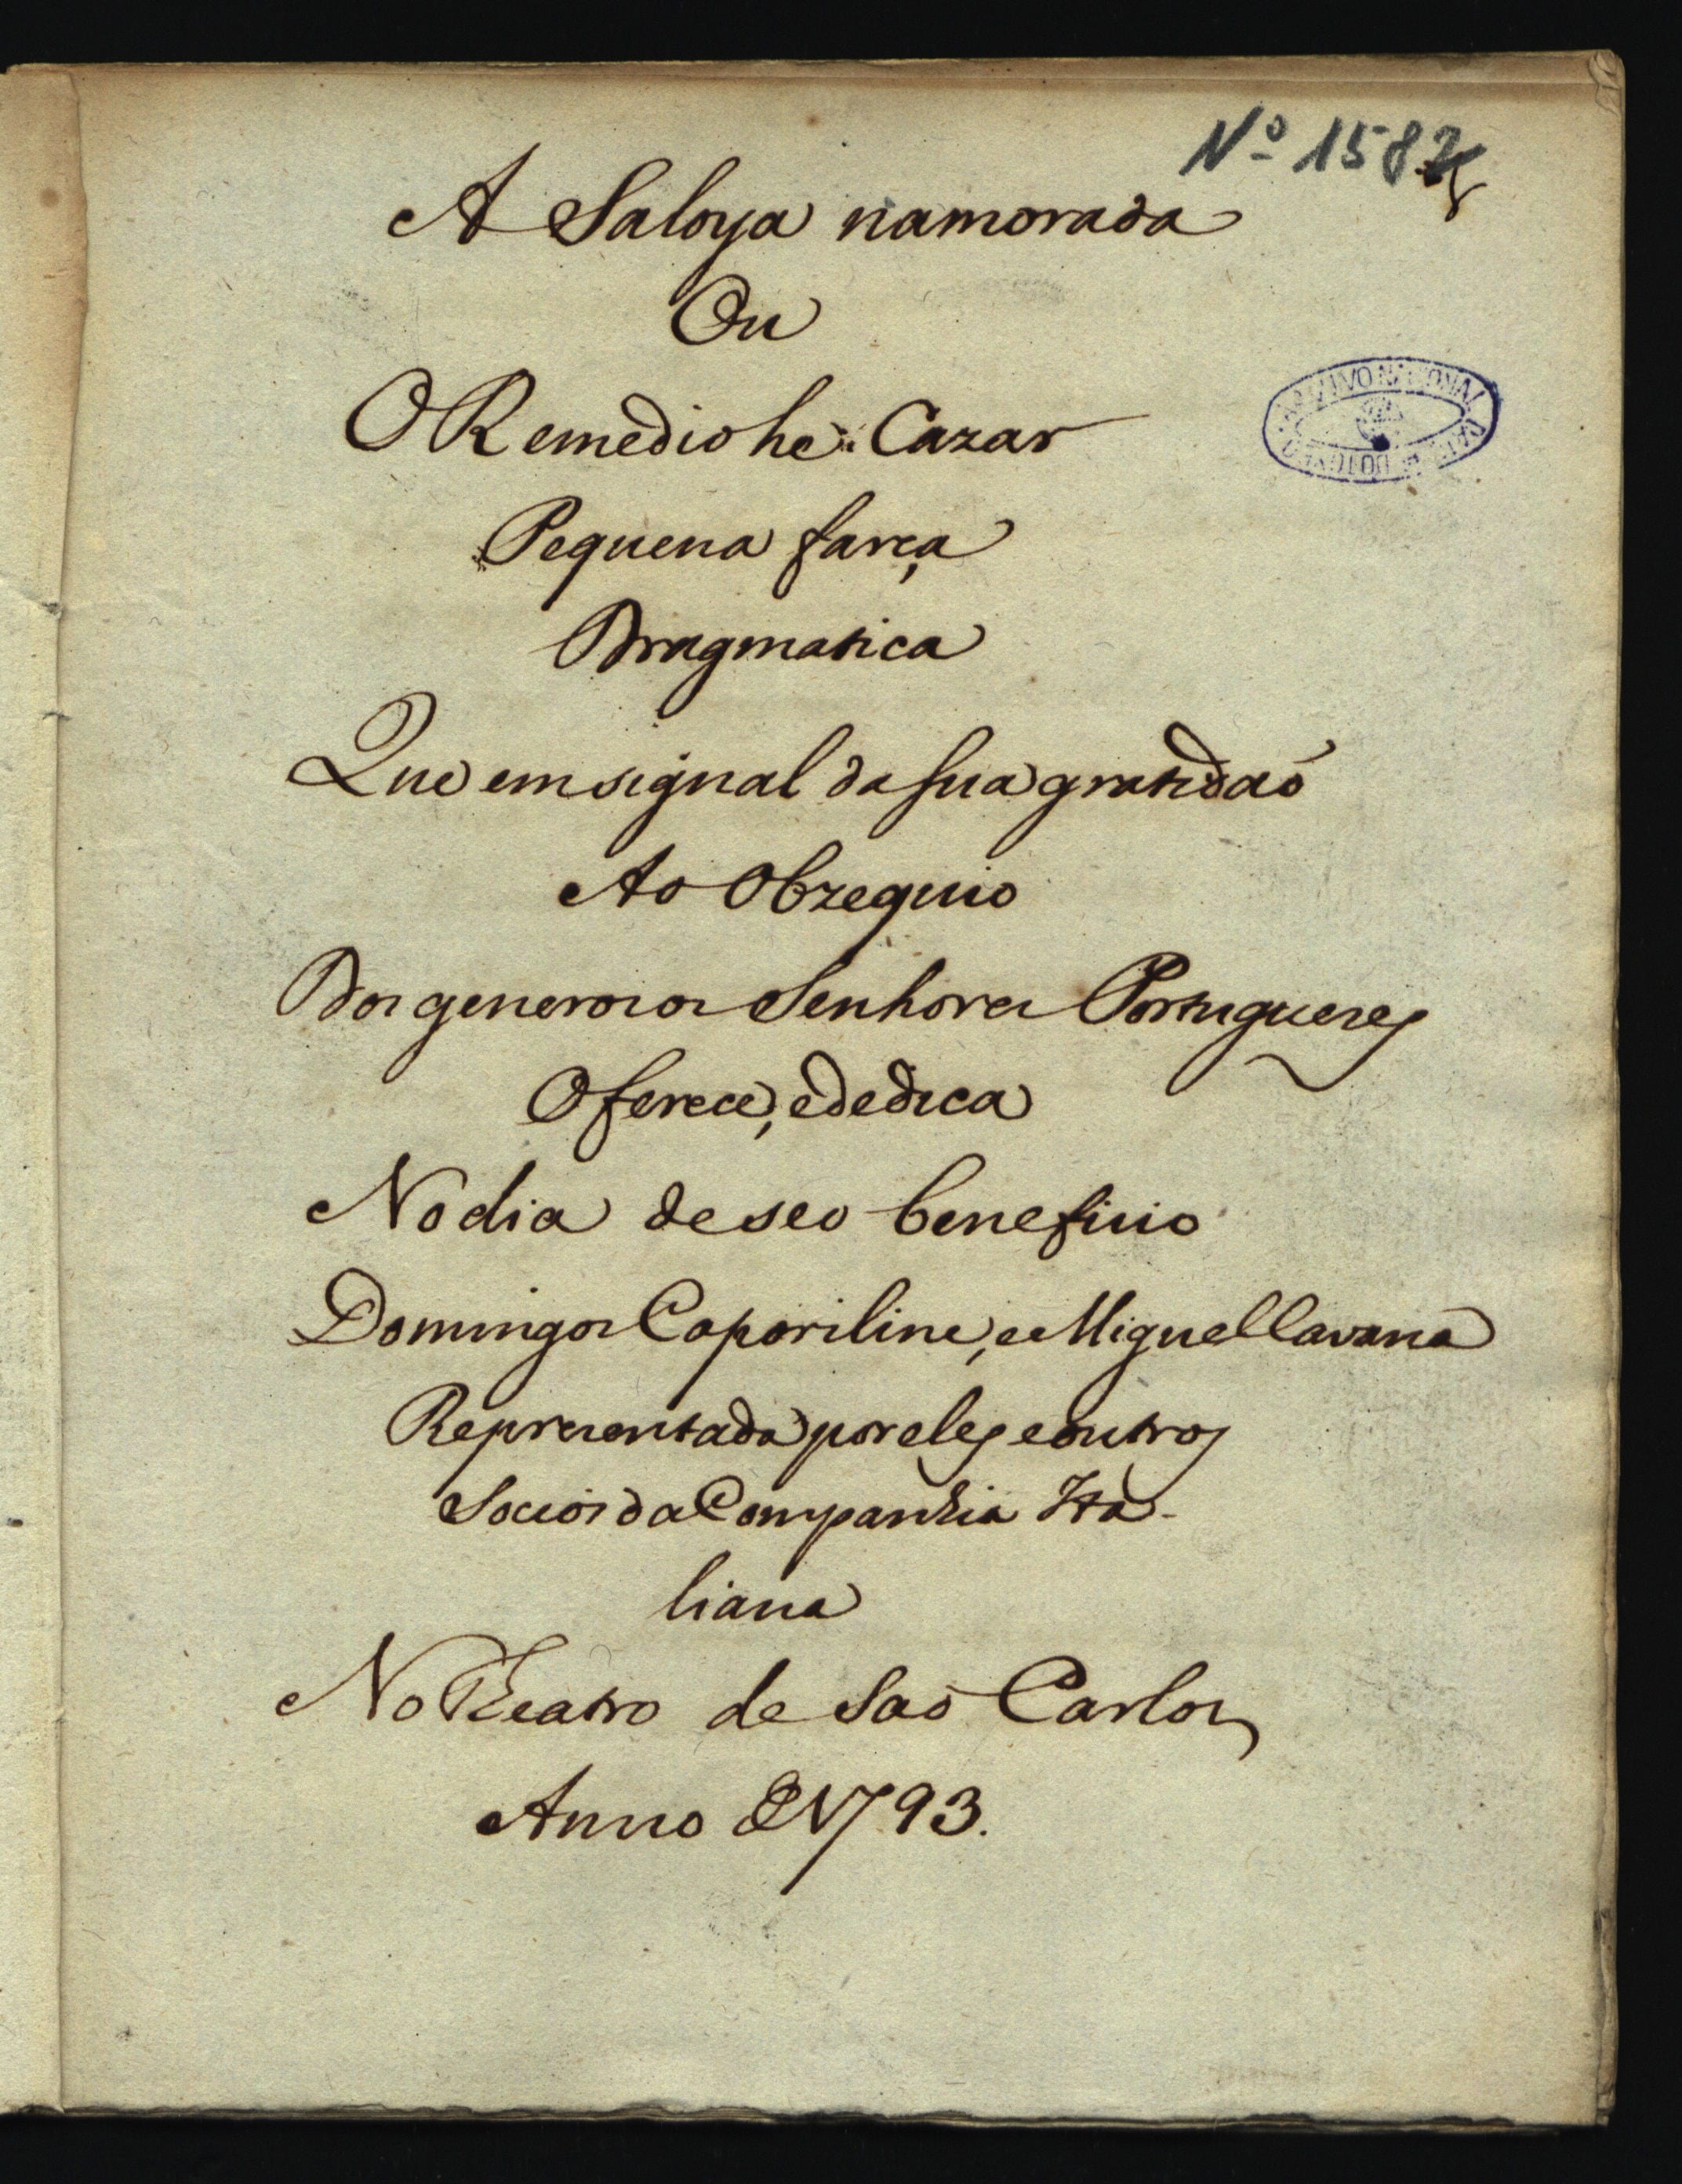 Nº 158
A Saloya namorada
Ou
O Remedio he Cazar
Pequena farça
Dragmatica
Que em signal da sua gratidaõ
Ao Obzequio
Dos generosos Senhores Portugueses
Oferece, e dedica
No dia de seo beneficio
Domingos Caporiline, e Miguel Cavana
Representada por eles e outros
Socios da Companhia Ita-
liana
No Theatro de Saõ Carlos
Anno d 1793.
ARCHIVO NACIONAL